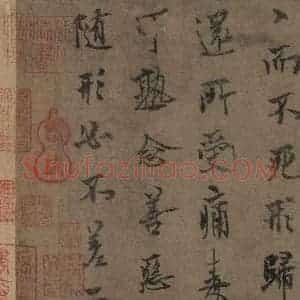 而不死形歸
還所受痛毒
可熟念善惡
隨形必不差
Shufaziliao.com